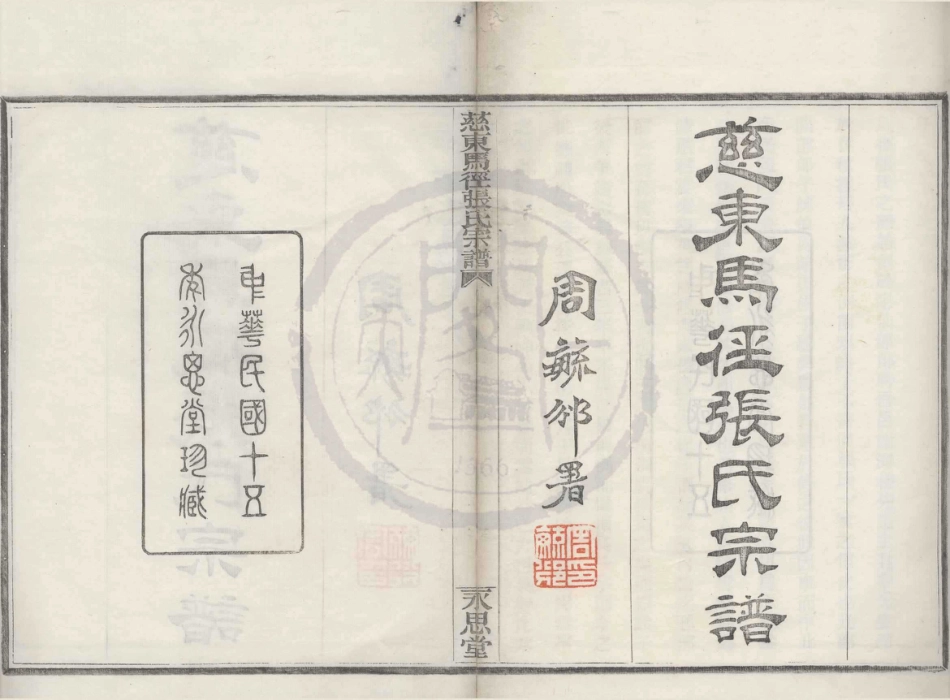 慈東馬徑張氏宗譜
周毓邠署
周毓邠印
慈東馬徑張氏宗譜
永思堂
中華民國十五
年永思堂珍藏
1966